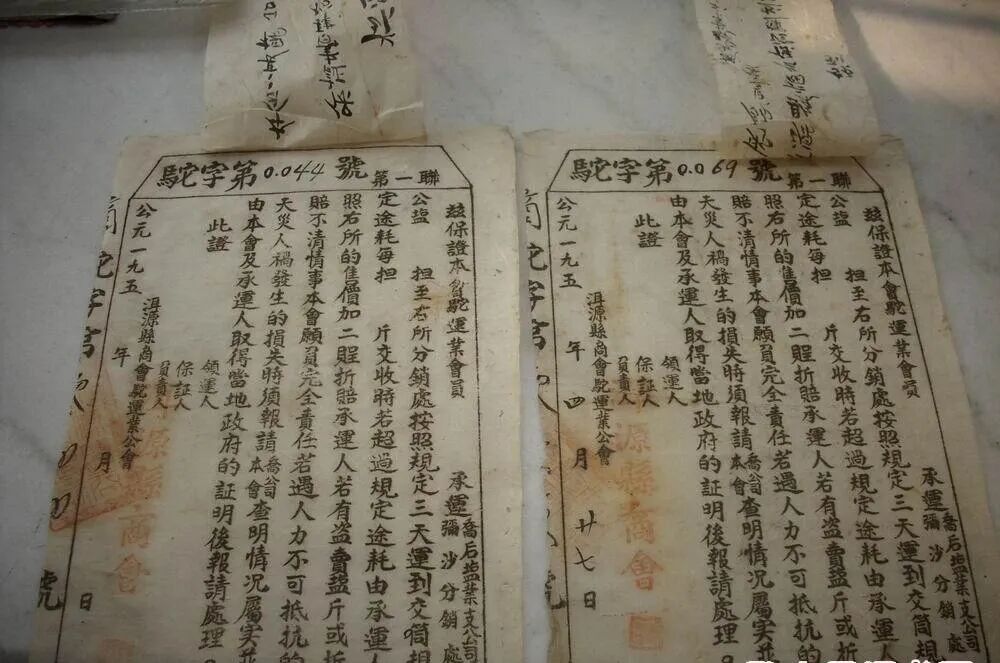 駝字第0.044號 第一聯
茲保證本會駝運業會員 承運 喬后盐業支公司 彌沙分銷處
公盐 担至右所分銷處按照規定三天運到交筒規
定途耗每担 斤交收時若超過規定途耗由承運人
照右所的售價加二賠折賠承運人若有盜賣盐斤或折
賠不清情事本會願負完全責任若遇人力不可抵抗的
天災人禍發生的損失時須報請喬公司本會查明情况屬实並
由本會及承運人取得當地政府的証明後報請處理。
此證
領運人
保証人
負責人
洱源縣商會駝運業公會
公元一九五 年 月 日
源縣商會
商駝字第 號
駝字第0.069號 第一聯
茲保證本會駝運業會員 承運 喬后盐業支公司 彌沙分銷處
公盐 担至右所分銷處按照規定三天運到交筒規
定途耗每担 斤交收時若超過規定途耗由承運人
照右所的售價加二賠折賠承運人若有盜賣盐斤或折
賠不清情事本會願負完全責任若遇人力不可抵抗的
天災人禍發生的損失時須報請喬公司本會查明情况屬实並
由本會及承運人取得當地政府的証明後報請處理。
此證
領運人
保証人
負責人
洱源縣商會駝運業公會
公元一九五 年四月廿七日
源縣商會
商駝字第 號